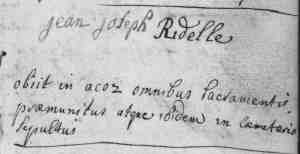 jean joseph Ridelle
obiit in acoz omnibus sacramentis
præmunitus atque ibidem in cæmeterio
sepultus